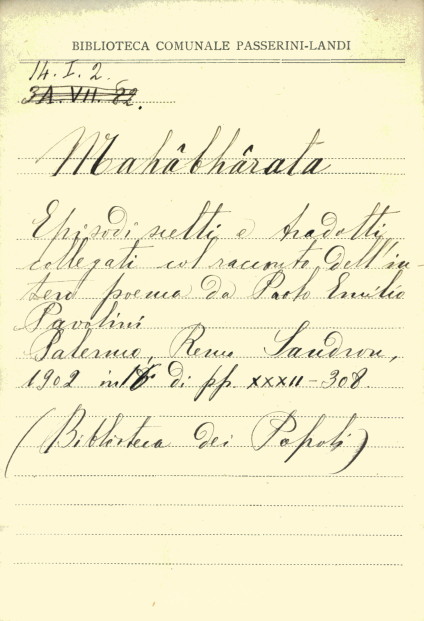 BIBLIOTECA COMUNALE PASSERINI-LANDI
14. I. 2.
3A. VII. 82.
Mahâbhârata
Episodi scelti e tradotti
collegati col racconto dell'in-
tero poema da Paolo Emilio
Pavolini
Palermo, Remo Sandron,
1902 in 16 di pp. XXXII-308.
(Biblioteca dei Popoli)